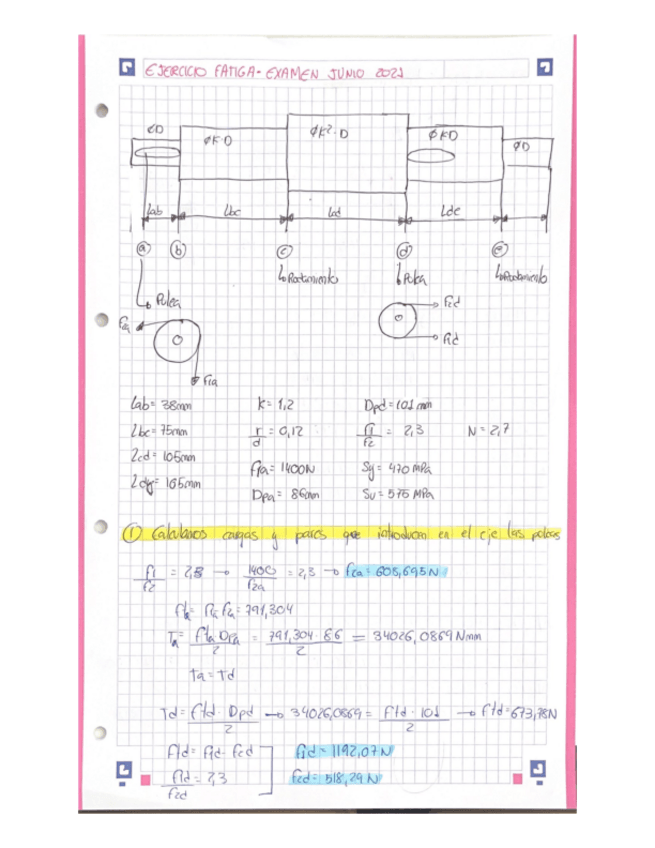 EJERCICIO FATIGA - EXAMEN JUNIO 2021
ØD
ØK·D
ØK²·D
ØKD
ØD
Lab
Lbc
Lcd
Lde
a b c d e
↳Rodamiento
↳Polea
↳Rodamiento
↳Polea
F2a
F1a
F2d
F1d
Lab= 38mm K= 1,2 Dpd=101 mm
Lbc= 75mm r/d = 0,12 f1/f2 = 2,3 N= 2,7
Lcd= 105mm F1a= 1400N Sy= 470 MPa
165mm Dpa= 86mm Su= 575 MPa
① Calculamos cargas y pares que introducen en el eje las poleas
f1/f2 = 2,3 → 1400/f2a = 2,3 → f2a= 608,695N
fta= f1a f2a= 791,304
Ta= fta Dpa/2 = 791,304·86/2 = 34026,0869 Nmm
Ta= Td
Td= ftd·Dpd/2 → 34026,0869= ftd·101/2 → ftd=673,78N
ftd= f1d-f2d f1d= 1192,07N
f1d/f2d= 2,3 f2d= 518,29N